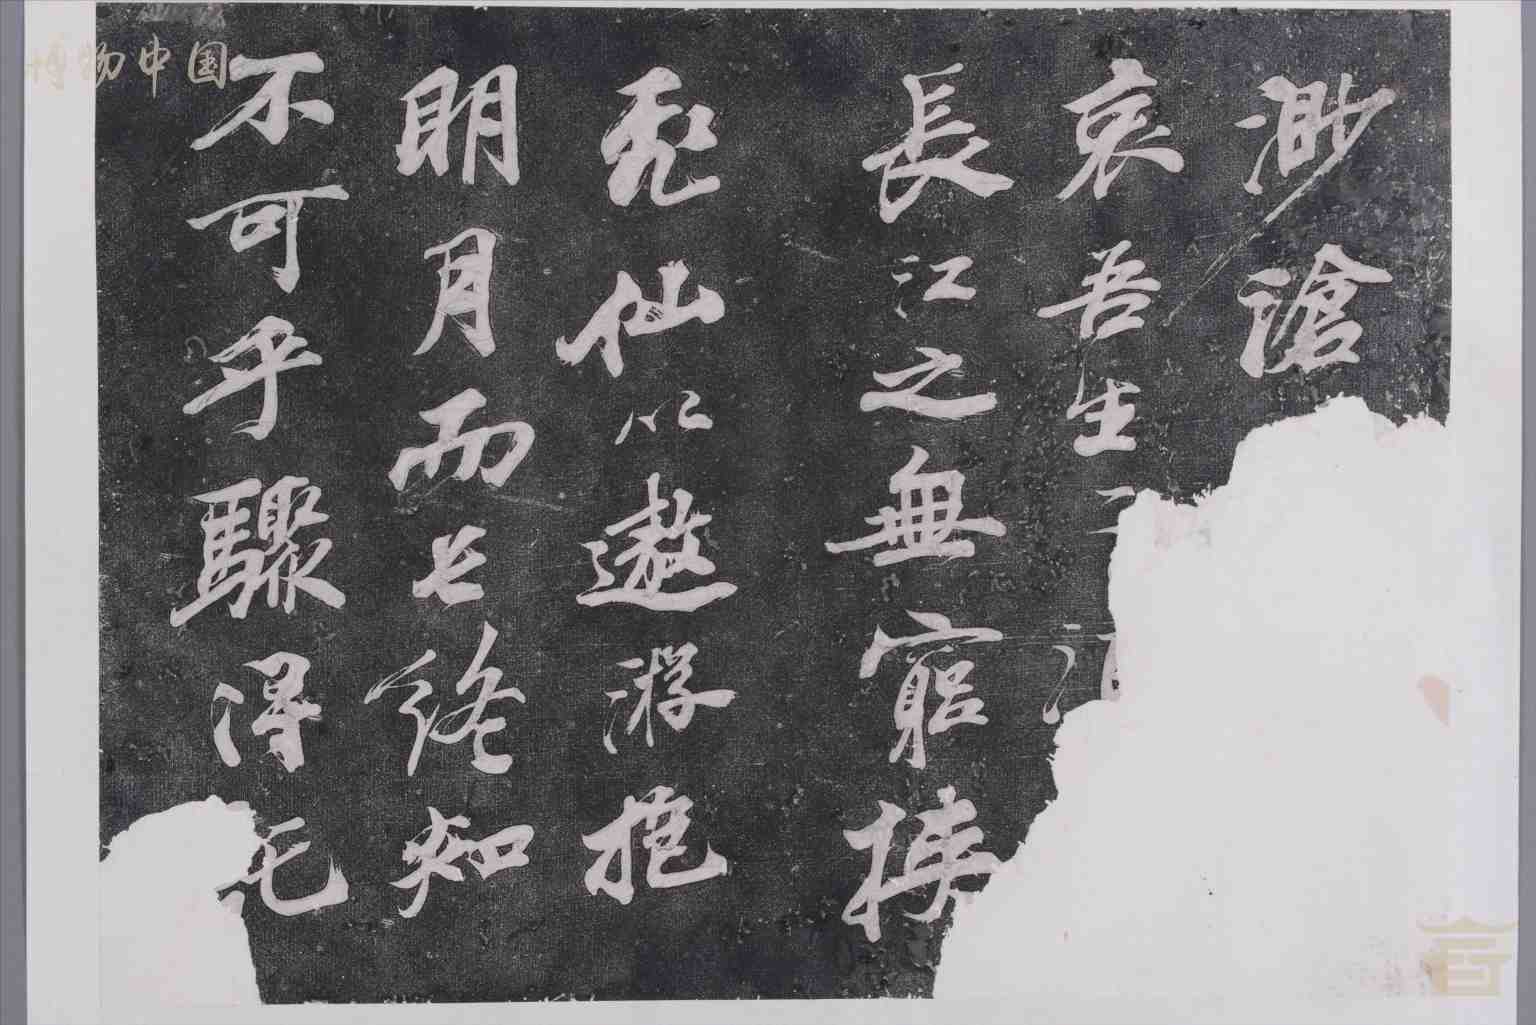 渺滄
哀吾生
長江之無窮挾
飛仙以遨游抱
明月而長終知
不可乎驟得托
博物中国